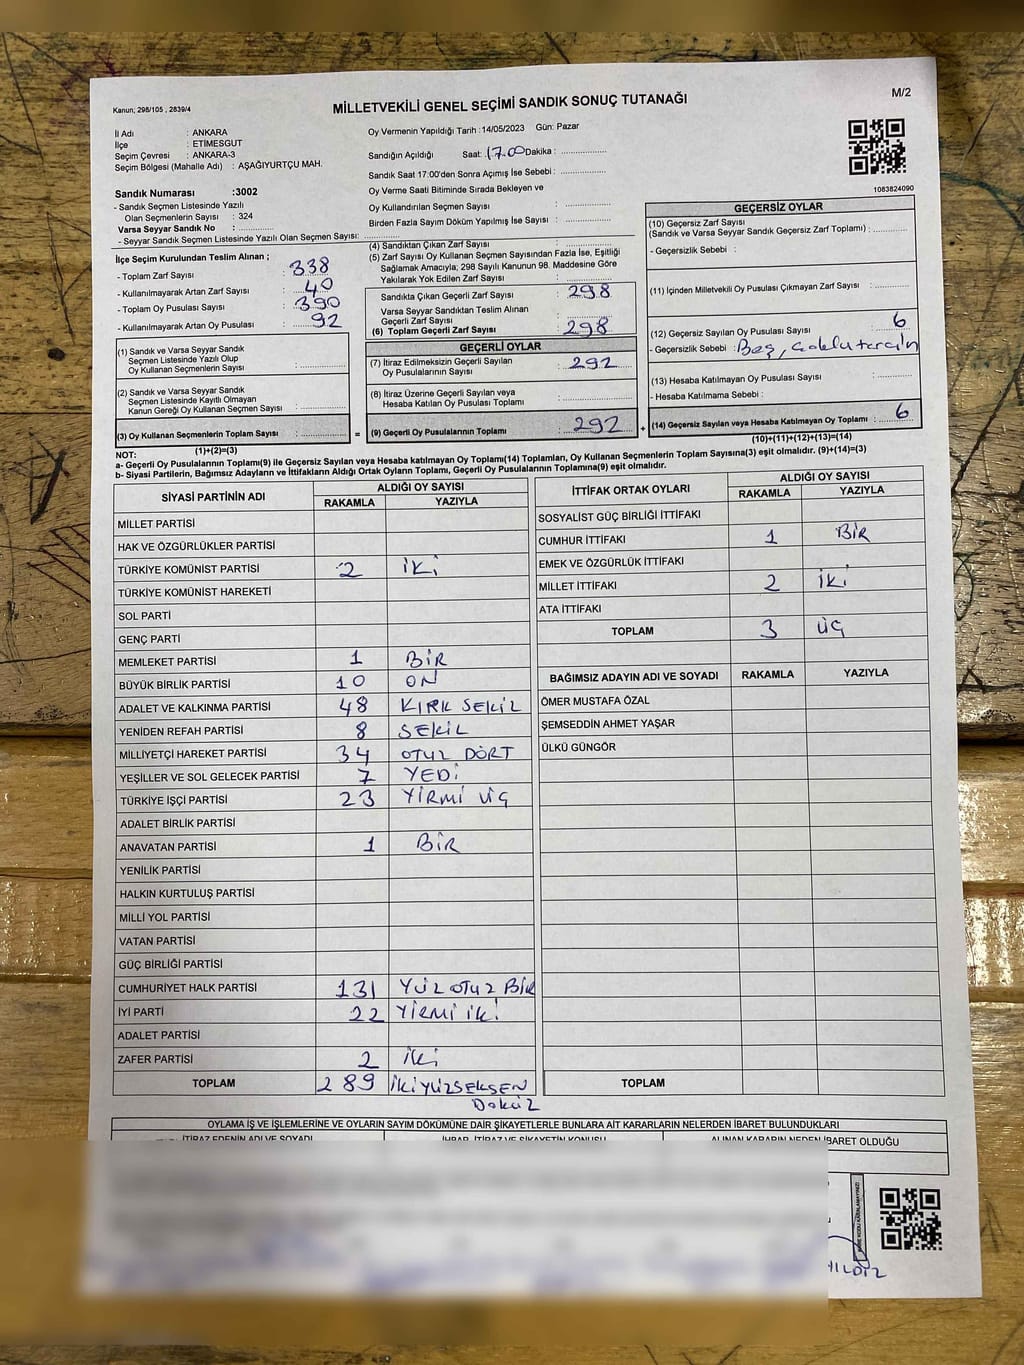 Kanun; 298/105 , 2839/4
MİLLETVEKİLİ GENEL SEÇİMİ SANDIK SONUÇ TUTANAĞI
M/2
İl Adı : ANKARA
İlçe : ETİMESGUT
Seçim Çevresi : ANKARA-3
Seçim Bölgesi (Mahalle Adı) : AŞAĞIYURTÇU MAH.
Sandık Numarası :3002
- Sandık Seçmen Listesinde Yazılı
Olan Seçmenlerin Sayısı : 324
Varsa Seyyar Sandık No : ..............
- Seyyar Sandık Seçmen Listesinde Yazılı Olan Seçmen Sayısı: ..............
Oy Vermenin Yapıldığı Tarih :14/05/2023 Gün: Pazar
Sandığın Açıldığı Saat: 17.00 Dakika : ..............
Sandık Saat 17:00'den Sonra Açımış İse Sebebi : ..............
Oy Verme Saati Bitiminde Sırada Bekleyen ve
Oy Kullandırılan Seçmen Sayısı : ..............
Birden Fazla Sayım Döküm Yapılmış İse Sayısı : ..............
1083824090
İlçe Seçim Kurulundan Teslim Alınan ;
- Toplam Zarf Sayısı : 338
- Kullanılmayarak Artan Zarf Sayısı : 40
- Toplam Oy Pusulası Sayısı : 390
- Kullanılmayarak Artan Oy Pusulası : 92
(1) Sandık ve Varsa Seyyar Sandık
Seçmen Listesinde Yazılı Olup
Oy Kullanan Seçmenlerin Sayısı : ..............
(2) Sandık ve Varsa Seyyar Sandık
Seçmen Listesinde Kayıtlı Olmayan
Kanun Gereği Oy Kullanan Seçmen Sayısı : ..............
(3) Oy Kullanan Seçmenlerin Toplam Sayısı : ..............
(1)+(2)=(3)
(4) Sandıktan Çıkan Zarf Sayısı : ..............
(5) Zarf Sayısı Oy Kullanan Seçmen Sayısından Fazla İse, Eşitliği
Sağlamak Amacıyla; 298 Sayılı Kanunun 98. Maddesine Göre
Yakılarak Yok Edilen Zarf Sayısı : ..............
Sandıkta Çıkan Geçerli Zarf Sayısı : 298
Varsa Seyyar Sandıktan Teslim Alınan
Geçerli Zarf Sayısı : ..............
(6) Toplam Geçerli Zarf Sayısı : 298
GEÇERLİ OYLAR
(7) İtiraz Edilmeksizin Geçerli Sayılan
Oy Pusulalarının Sayısı : 292
(8) İtiraz Üzerine Geçerli Sayılan veya
Hesaba Katılan Oy Pusulası Toplamı : ..............
= (9) Geçerli Oy Pusulalarının Toplamı : 292 +
GEÇERSİZ OYLAR
(10) Geçersiz Zarf Sayısı
(Sandık ve Varsa Seyyar Sandık Geçersiz Zarf Toplamı) : ..............
- Geçersizlik Sebebi :
(11) İçinden Milletvekili Oy Pusulası Çıkmayan Zarf Sayısı : ..............
(12) Geçersiz Sayılan Oy Pusulası Sayısı : 6
- Geçersizlik Sebebi : Boş,
(13) Hesaba Katılmayan Oy Pusulası Sayısı : ..............
- Hesaba Katılmama Sebebi :
(14) Geçersiz Sayılan veya Hesaba Katılmayan Oy Toplamı : 6
(10)+(11)+(12)+(13)=(14)
NOT:
a- Geçerli Oy Pusulalarının Toplamı(9) ile Geçersiz Sayılan veya Hesaba katılmayan Oy Toplamı(14) Toplamları, Oy Kullanan Seçmenlerin Toplam Sayısına(3) eşit olmalıdır. (9)+(14)=(3)
b- Siyasi Partilerin, Bağımsız Adayların ve İttifakların Aldığı Ortak Oyların Toplamı, Geçerli Oy Pusulalarının Toplamına(9) eşit olmalıdır.
SİYASİ PARTİNİN ADI ALDIĞI OY SAYISI
RAKAMLA YAZIYLA
MİLLET PARTİSİ
HAK VE ÖZGÜRLÜKLER PARTİSİ
TÜRKİYE KOMÜNİST PARTİSİ 2 İKİ
TÜRKİYE KOMÜNİST HAREKETİ
SOL PARTİ
GENÇ PARTİ
MEMLEKET PARTİSİ 1 BİR
BÜYÜK BİRLİK PARTİSİ 10 ON
ADALET VE KALKINMA PARTİSİ 48 KIRK SEKİZ
YENİDEN REFAH PARTİSİ 8 SEKİZ
MİLLİYETÇİ HAREKET PARTİSİ 34 OTUZ DÖRT
YEŞİLLER VE SOL GELECEK PARTİSİ 7 YEDİ
TÜRKİYE İŞÇİ PARTİSİ 23 YİRMİ ÜÇ
ADALET BİRLİK PARTİSİ
ANAVATAN PARTİSİ 1 BİR
YENİLİK PARTİSİ
HALKIN KURTULUŞ PARTİSİ
MİLLİ YOL PARTİSİ
VATAN PARTİSİ
GÜÇ BİRLİĞİ PARTİSİ
CUMHURİYET HALK PARTİSİ 131 YÜZ OTUZ BİR
İYİ PARTİ 22 YİRMİ İKİ
ADALET PARTİSİ
ZAFER PARTİSİ 2 İKİ
TOPLAM 289 İKİYÜZSEKSEN
DOKUZ
İTTİFAK ORTAK OYLARI ALDIĞI OY SAYISI
RAKAMLA YAZIYLA
SOSYALİST GÜÇ BİRLİĞİ İTTİFAKI
CUMHUR İTTİFAKI 1 BİR
EMEK VE ÖZGÜRLÜK İTTİFAKI
MİLLET İTTİFAKI 2 İKİ
ATA İTTİFAKI
TOPLAM 3 ÜÇ
BAĞIMSIZ ADAYIN ADI VE SOYADI RAKAMLA YAZIYLA
ÖMER MUSTAFA ÖZAL
ŞEMSEDDİN AHMET YAŞAR
ÜLKÜ GÜNGÖR
TOPLAM
OYLAMA İŞ VE İŞLEMLERİNE VE OYLARIN SAYIM DÖKÜMÜNE DAİR ŞİKAYETLERLE BUNLARA AİT KARARLARIN NELERDEN İBARET BULUNDUKLARI
İTİRAZ EDENİN ADI VE SOYADI İHBAR, İTİRAZ VE ŞİKAYETİN KONUSU ALINAN KARARIN NEDEN İBARET OLDUĞU